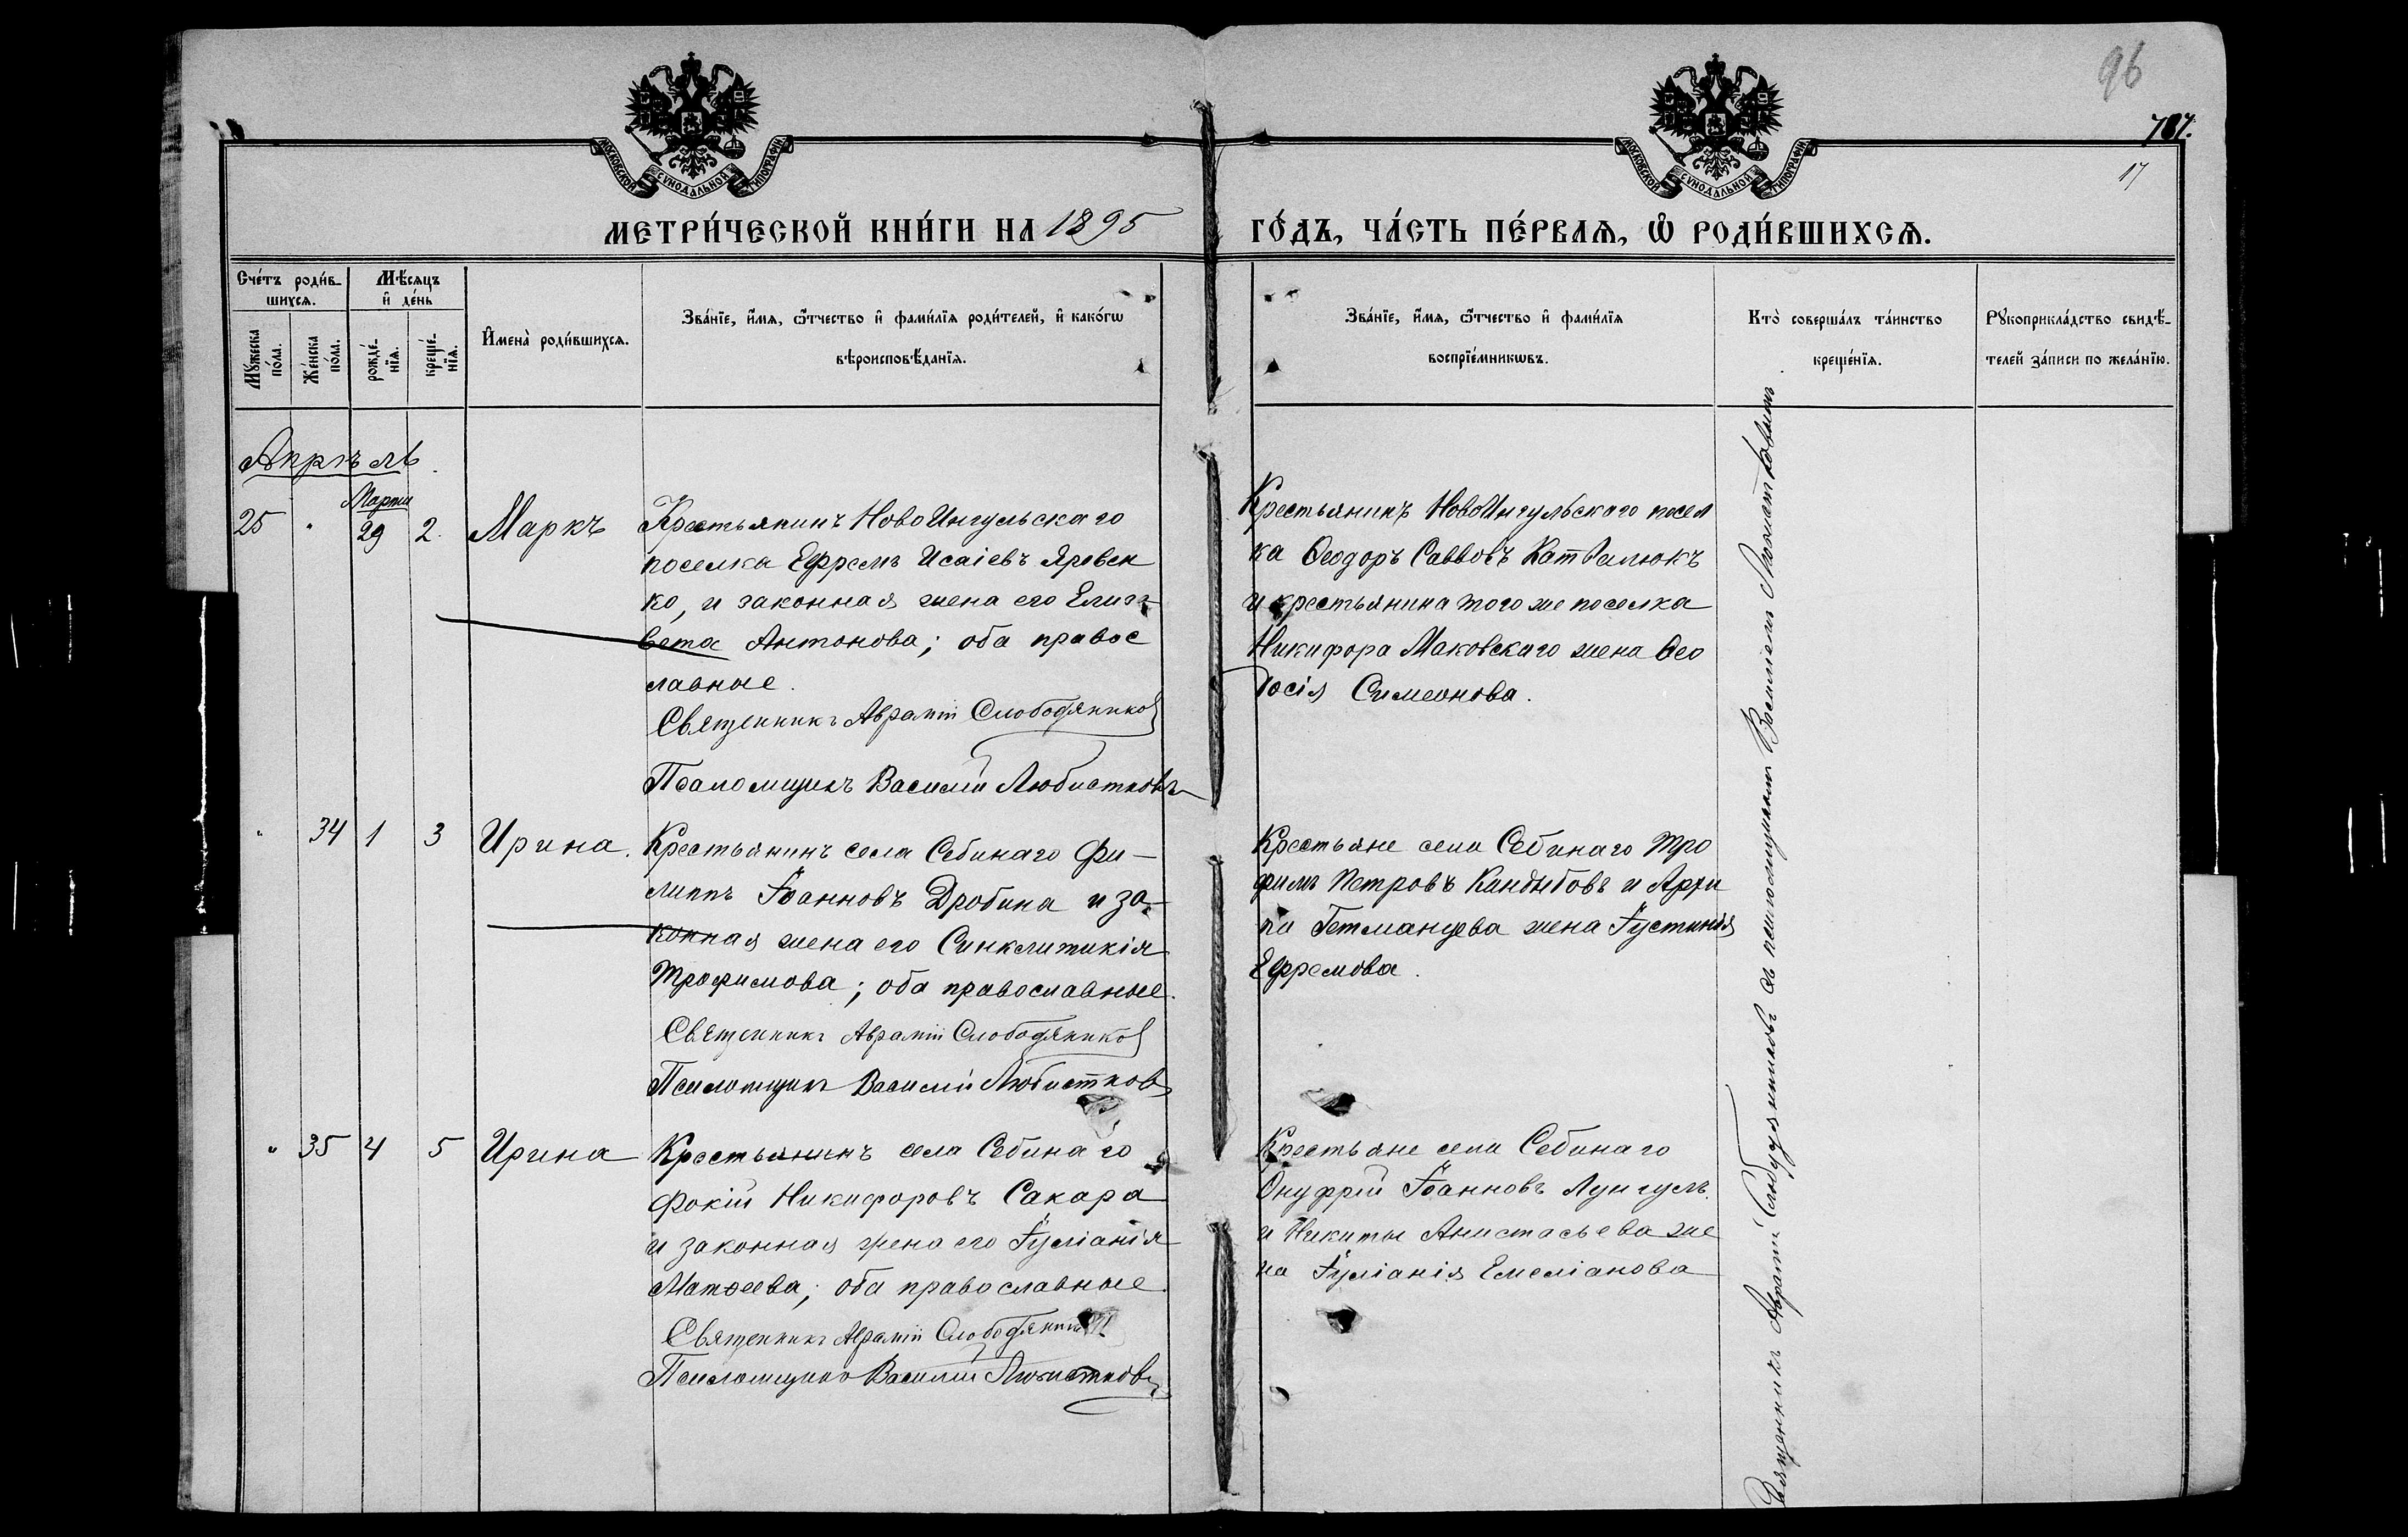 96
787.
17
МОСКОВСКОЙ СѴНОДАЛЬНОЙ ТИПОГРАФІИ
МОСКОВСКОЙ СѴНОДАЛЬНОЙ ТИПОГРАФІИ
МЕТРИ́ЧЕСКОЙ КНИ́ГИ НА 1895 ГО́ДЪ, ЧА́СТЬ ПЕ́РВАѦ, Ѽ РОДИ́ВШИХСѦ.
Сче́тъ роди́в-
шихсѧ.
Мѣ́сѧцъ
и҆ де́нь
Мꙋ́жеска
по́ла.
Же́нска
по́ла.
рожде́-
нїѧ.
креще́-
нїѧ.
И҆мена̀ роди́вшихсѧ.
Зва́нїе, и҆́мѧ, ѻ҆́тчество и҆ фами́лїѧ роди́телей, и҆ како́гѡ
вѣроисповѣ́данїѧ.
Зва́нїе, и҆́мѧ, ѻ҆́тчество и҆ фами́лїѧ
воспрїе́мникѡвъ.
Кто̀ соверша́лъ та́инство
креще́нїѧ.
Рꙋкоприкла́дство свидѣ́-
телей за́писи по жела́нїю.
Апрѣль
Марта
25 " 29 2. Маркъ
Крестьянинъ НовоИнгульскаго
поселка Ефремъ Исаіевъ Яровен
ко, и законная жена его Елиза-
вета Антонова; оба правос
лавные.
Священникъ Аврамій Слободяников
Псаломщикъ Василій Любистковъ
Крестьянинъ НовоИнгульскаго посел
ка Ѳеодоръ Саввовъ
и крестьянина того же поселка
Никифора Маковскаго жена Ѳео
досія Симеонова.
" 34 1 3 Ирина.
Крестьянинъ села Себинаго Фи-
липпъ Іоанновъ Дробина и за-
конная жена его Синклитикія
Трофимова; оба православные.
Священникъ Аврамій Слободяников
Псаломщикъ Василій Любистков
Крестьяне села Себинаго Тро
фимъ Петровъ Кандыбовъ и Архи
па Гетманцева жена Іустинія
Ефремова.
" 35 4 5 Ирина
Крестьянинъ села Себинаго
Фокій Никифоровъ Сакара
и законная жена его Іуліанія
Матѳеева; оба православные.
Священникъ Аврамій Слободяников
Псаломщикъ Василій Любистковъ
Крестьяне села Себинаго
Онуфрій Іоанновъ Лунгулъ
и Никиты Анастасьева же
на Іуліанія Емеліанова
Священникъ Аврамій Слободяниковъ съ псаломщикомъ Василіемъ Любистковымъ.